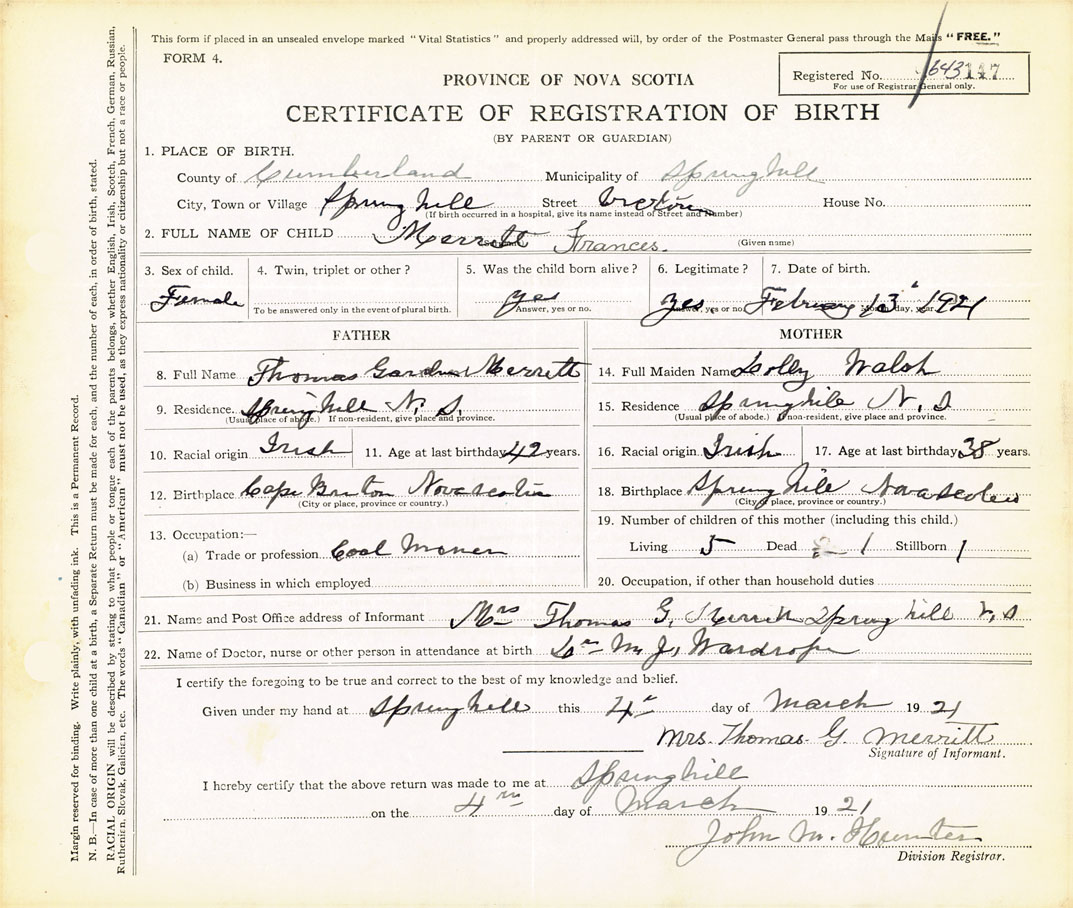 This form if placed in an unsealed envelope marked "Vital Statistics" and properly addressed will, by order of the Postmaster General pass through the Mails "FREE."
FORM 4.
PROVINCE OF NOVA SCOTIA
Registered No. 643147
For use of Registrar General only.
CERTIFICATE OF REGISTRATION OF BIRTH
(BY PARENT OR GUARDIAN)
1. PLACE OF BIRTH.
County of Cumberland Municipality of Springhill
City, Town or Village Springhill Street House No.
(If birth occurred in a hospital, give its name instead of Street and Number)
2. FULL NAME OF CHILD Merritt Frances.
(Given name)
3. Sex of child. 4. Twin, triplet or other? 5. Was the child born alive? 6. Legitimate? 7. Date of birth.
Female yes yes February 13 1921
To be answered only in the event of plural birth. Answer, yes or no. Answer, yes or no. Month, day, year.
FATHER MOTHER
8. Full Name Thomas Gardner Merritt 14. Full Maiden Name Dolly Walsh
9. Residence. Springhill N. S. 15. Residence Springhill N. S
(Usual place of abode.) If non-resident, give place and province. (Usual place of abode.) If non-resident, give place and province.
10. Racial origin Irish 11. Age at last birthday 42 years. 16. Racial origin Irish 17. Age at last birthday 38 years.
12. Birthplace Cape Breton Nova scotia 18. Birthplace Spring hill Nova scotia
(City or place, province or country.) (City or place, province or country.)
13. Occupation:— 19. Number of children of this mother (including this child.)
(a) Trade or profession Coal Living 5 Dead 1 Stillborn 1
(b) Business in which employed 20. Occupation, if other than household duties
21. Name and Post Office address of Informant Mrs Thomas G. Merritt Spring hill N, S
22. Name of Doctor, nurse or other person in attendance at birth Dr M. J. Wardrope
I certify the foregoing to be true and correct to the best of my knowledge and belief.
Given under my hand at Springhill this 4 day of March 1921
Mrs. Thomas. G. Merritt
Signature of Informant.
I hereby certify that the above return was made to me at Springhill
on the 4 day of March 1921
John M. Hunter
Division Registrar.
Margin reserved for binding. Write plainly, with unfading ink. This is a Permanent Record.
N. B.—In case of more than one child at a birth, a Separate Return must be made for each, and the number of each, in order of birth, stated.
RACIAL ORIGIN will be described by stating to what people or tongue each of the parents belongs, whether English, Irish, Scotch, French, German, Russian,
Ruthenien, Slovak, Galicien, etc. The words "Canadian" or "American" must not be used, as they express nationality or citizenship but not a race or people.